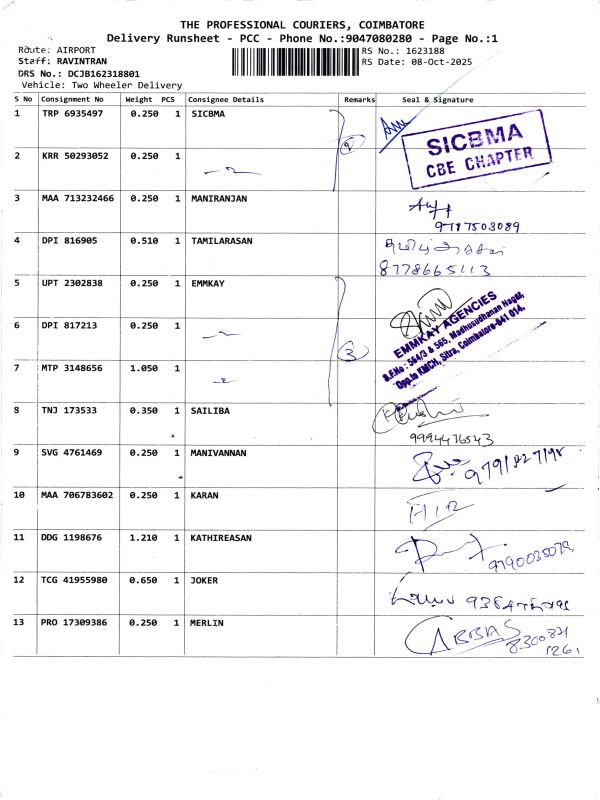 THE PROFESSIONAL COURIERS, COIMBATORE
Delivery Runsheet - PCC - Phone No.:9047080280 - Page No.:1
Route: AIRPORT RS No.: 1623188
Staff: RAVINTRAN RS Date: 08-Oct-2025
DRS No.: DCJB162318801
Vehicle: Two Wheeler Delivery
S No Consignment No Weight PCS Consignee Details Remarks Seal & Signature
1 TRP 6935497 0.250 1 SICBMA
SICBMA
CBE CHAPTER
2 KRR 50293052 0.250 1
2
3 MAA 713232466 0.250 1 MANIRANJAN
9787503089
4 DPI 816905 0.510 1 TAMILARASAN
8778665113
5 UPT 2302838 0.250 1 EMMKAY
EMMKAY AGENCIES
S.F.No : 564/3 & 565, Madhusudhanan Nagar,
Opp.to KMCH, Sitra, Coimbatore-641 014.
6 DPI 817213 0.250 1
3
7 MTP 3148656 1.050 1
8 TNJ 173533 0.350 1 SAILIBA
9994476543
9 SVG 4761469 0.250 1 MANIVANNAN
9791827198
10 MAA 706783602 0.250 1 KARAN
11 DDG 1198676 1.210 1 KATHIREASAN
12 TCG 41955980 0.650 1 JOKER
13 PRO 17309386 0.250 1 MERLIN
ABBAS